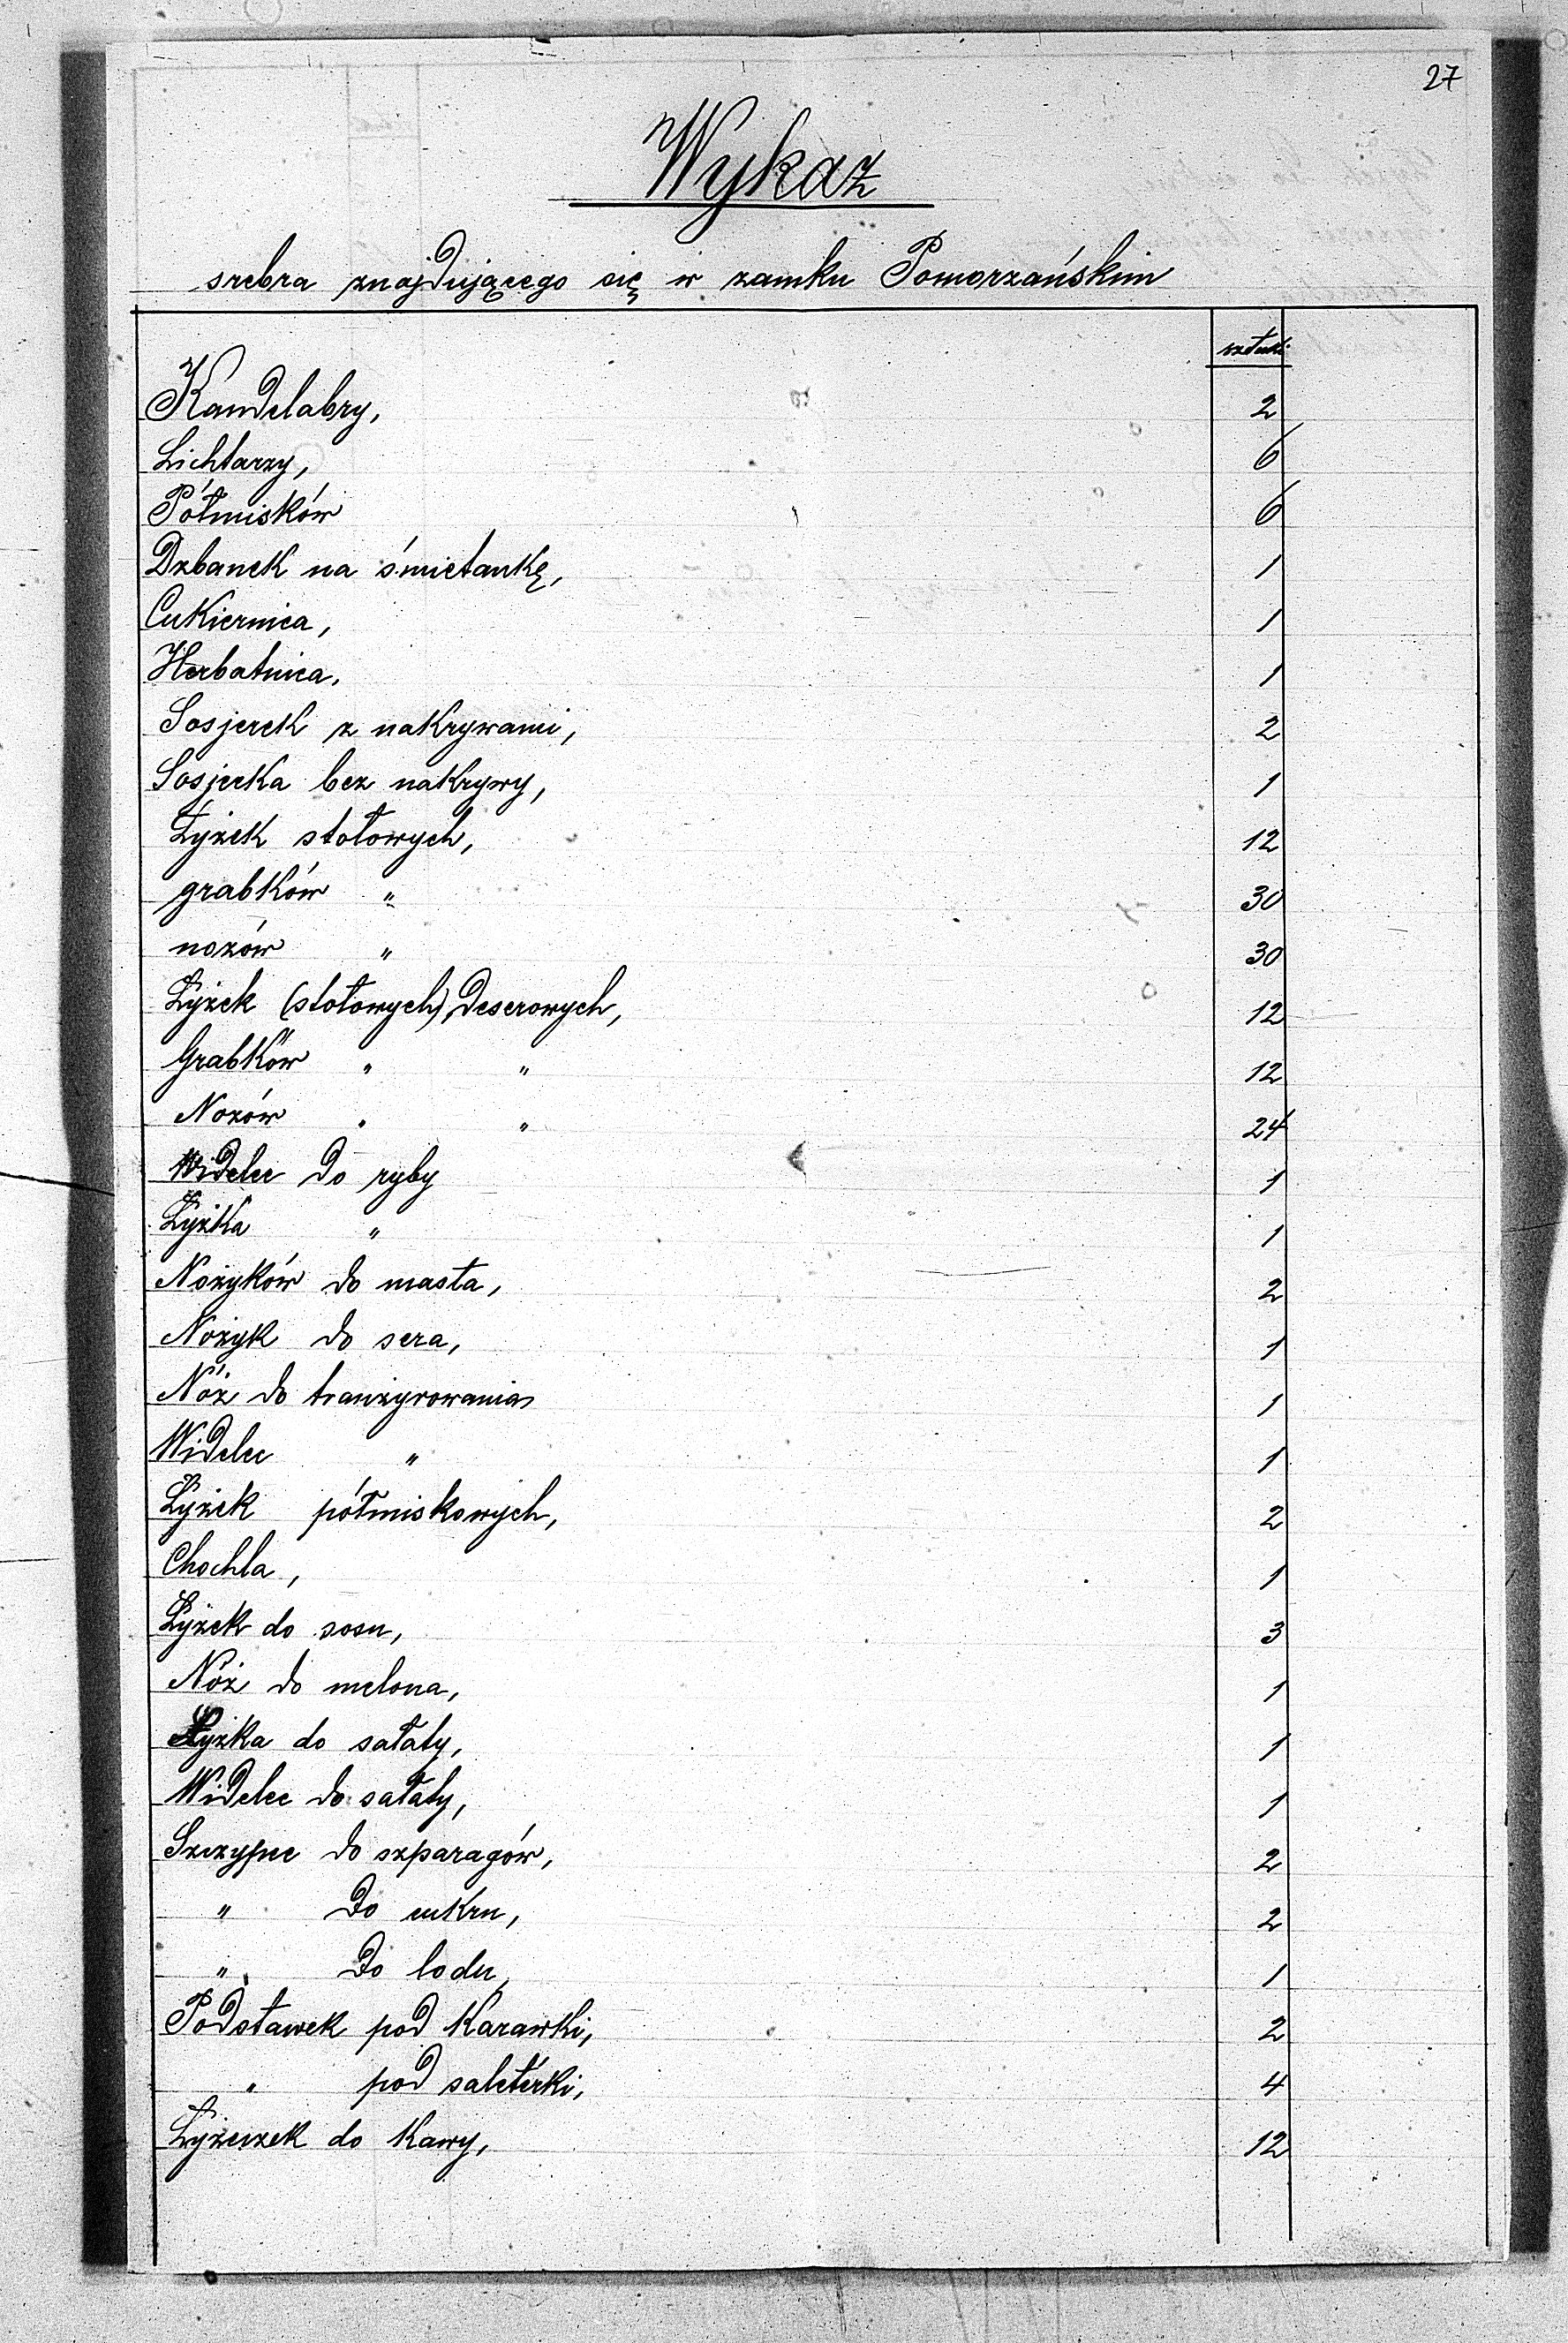 27
Wykaz
srebra znajdującego się w zamku Pomorzańskim
sztuki
Kandelabry, 2
Lichtarzy, 6
Półmisków 6
Dzbanek na śmietankę, 1
Cukiernica, 1
Herbatnica, 1
Sosjerek z nakrywami, 2
Sosjerka bez nakrywy, 1
Łyżek stołowych, 12
grabków " 30
nożów " 30
Łyżek (stołowych) deserowych, 12
Grabków " " 12
Nożów " " 24
Widelec do ryby 1
Łyżka " 1
Nożyków do masła, 2
Nożyk do sera, 1
Nóż do tranżyrowania 1
Widelec " 1
Łyżek półmiskowych, 2
Chochla, 1
Łyżek do sosu, 3
Nóż do melona, 1
Łyżka do sałaty, 1
Widelec do sałaty, 1
Szczypce do szparagów, 2
" Do cukru, 2
" Do lodu, 1
Podstawek pod Karawki, 2
" pod saletérki, 4
Łyżeczek do Kawy, 12